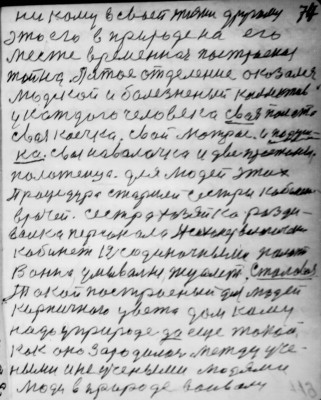 ни кому в своей жизни другому 74
этого в природе на его
месте временная построена
тойна. Пятое отделение оказался
людской и болезненый
у каждого человека своя палата
своя коечка. свой матрас. и подуш-
ка. своя наволочка и две простыни.
полотенца. для людей этих
процедура старший сестры кабинет
врачей. сестра хозяйка разди-
валка персонала
кабинет 12 с одиночными палат
Ванна умывални туалет. Столовая
Такой построеный для людей
кирпичного цвета дом кому
надо природе да еще такой
как оно зародилось между уче-
ными и не учеными людями
люди в природе